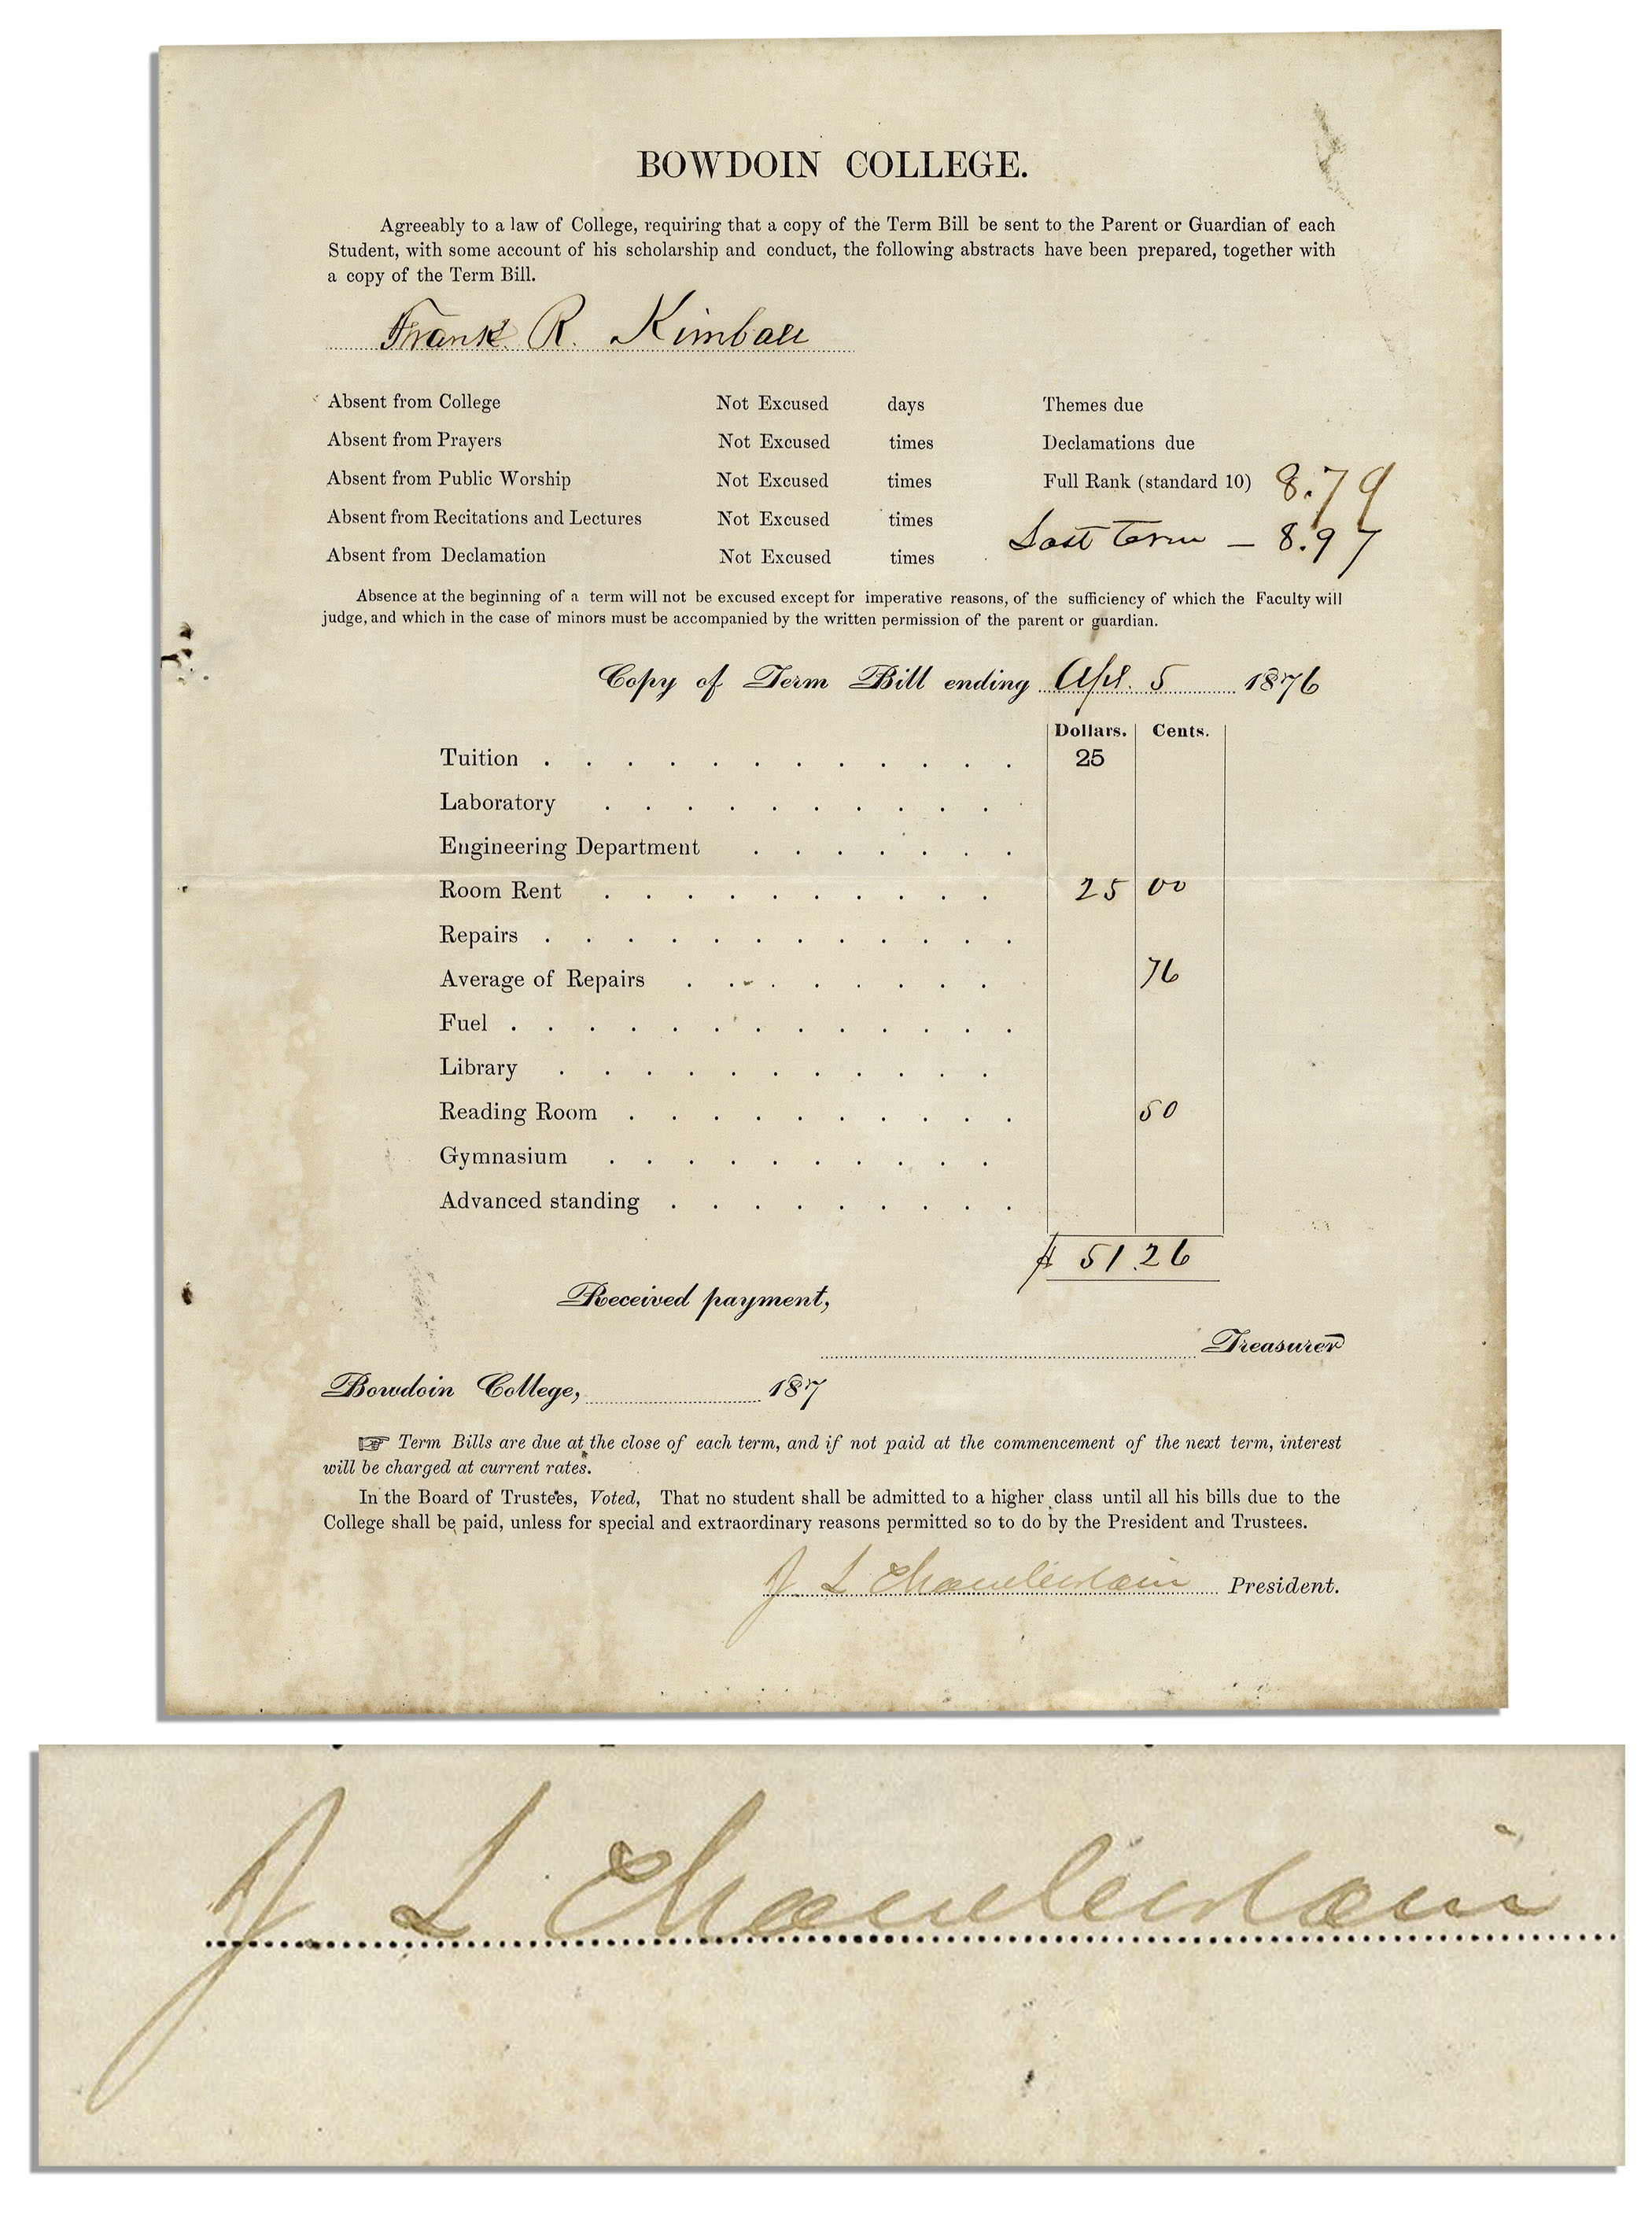 BOWDOIN COLLEGE.
Agreeably to a law of College, requiring that a copy of the Term Bill be sent to the Parent or Guardian of each
Student, with some account of his scholarship and conduct, the following abstracts have been prepared, together with
a copy of the Term Bill.
Frank R. Kimball
Absent from College Not Excused days Themes due
Absent from Prayers Not Excused times Declamations due
Absent from Public Worship Not Excused times Full Rank (standard 10) 8.79
Absent from Recitations and Lectures Not Excused times
Last term — 8.97
Absent from Declamation Not Excused times
Absence at the beginning of a term will not be excused except for imperative reasons, of the sufficiency of which the Faculty will
judge, and which in the case of minors must be accompanied by the written permission of the parent or guardian.
Copy of Term Bill ending Apl. 5 1876
Dollars. Cents.
Tuition . . . . . . . . . . . . 25
Laboratory . . . . . . . . . . .
Engineering Department . . . . . . .
Room Rent . . . . . . . . . . 25 00
Repairs . . . . . . . . . . . .
Average of Repairs . . . . . . . . 76
Fuel . . . . . . . . . . . . .
Library . . . . . . . . . . .
Reading Room . . . . . . . . . . 50
Gymnasium . . . . . . . . . .
Advanced standing . . . . . . . . .
$ 51.26
Received payment,
Treasurer
Bowdoin College, 187
☞ Term Bills are due at the close of each term, and if not paid at the commencement of the next term, interest
will be charged at current rates.
In the Board of Trustees, Voted, That no student shall be admitted to a higher class until all his bills due to the
College shall be paid, unless for special and extraordinary reasons permitted so to do by the President and Trustees.
J L Chamberlain President.
J L Chamberlain